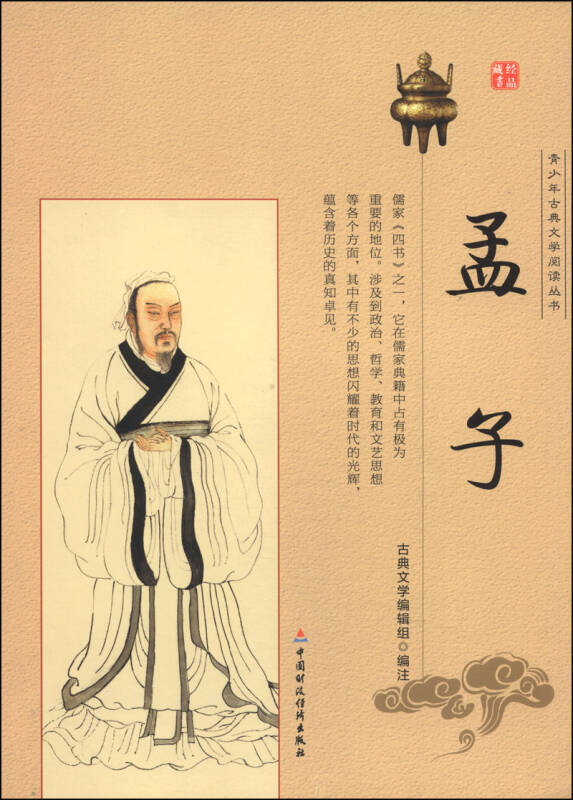 经品
藏书
青少年古典文学阅读丛书
孟子
儒家《四书》之一，它在儒家典籍中占有极为
重要的地位。涉及到政治、哲学、教育和文艺思想
等各个方面，其中有不少的思想闪耀着时代的光辉，
蕴含着历史的真知卓见。
古典文学编辑组◎编注
中国财政经济出版社